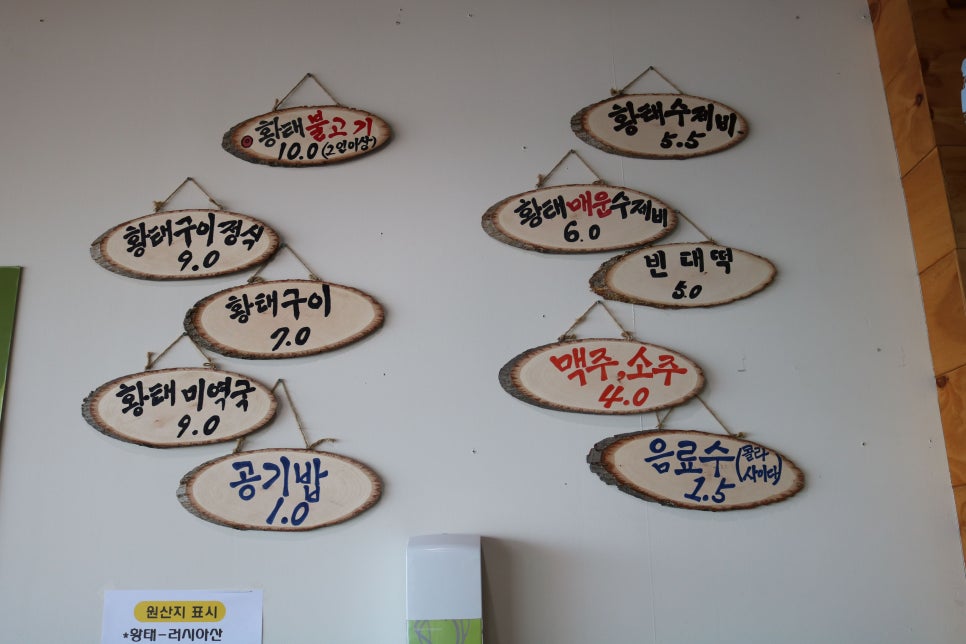 황태불고기
10.0 (2인이상)
황태구이정식
9.0
황태구이
7.0
황태미역국
9.0
공기밥
1.0
황태수제비
5.5
황태매운수제비
6.0
빈대떡
5.0
맥주,소주
4.0
음료수(콜라
사이다)
1.5
원산지 표시
*황태-러시아산